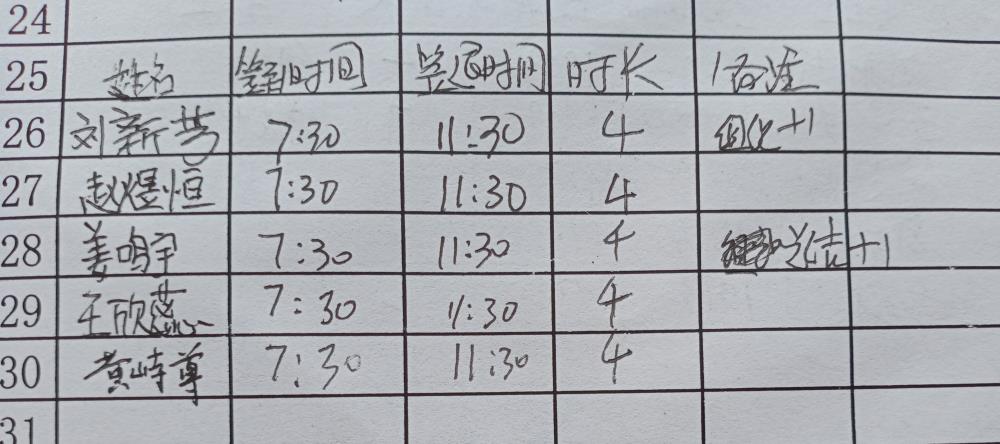 24
25 姓名 签到时间 签退时间 时长 备注
26 刘新芳 7:30 11:30 4 组长+1
27 赵煜恒 7:30 11:30 4
28 姜鸣宇 7:30 11:30 4 总结+1
29 王欣蕊 7:30 11:30 4
30 黄峙尊 7:30 11:30 4
31